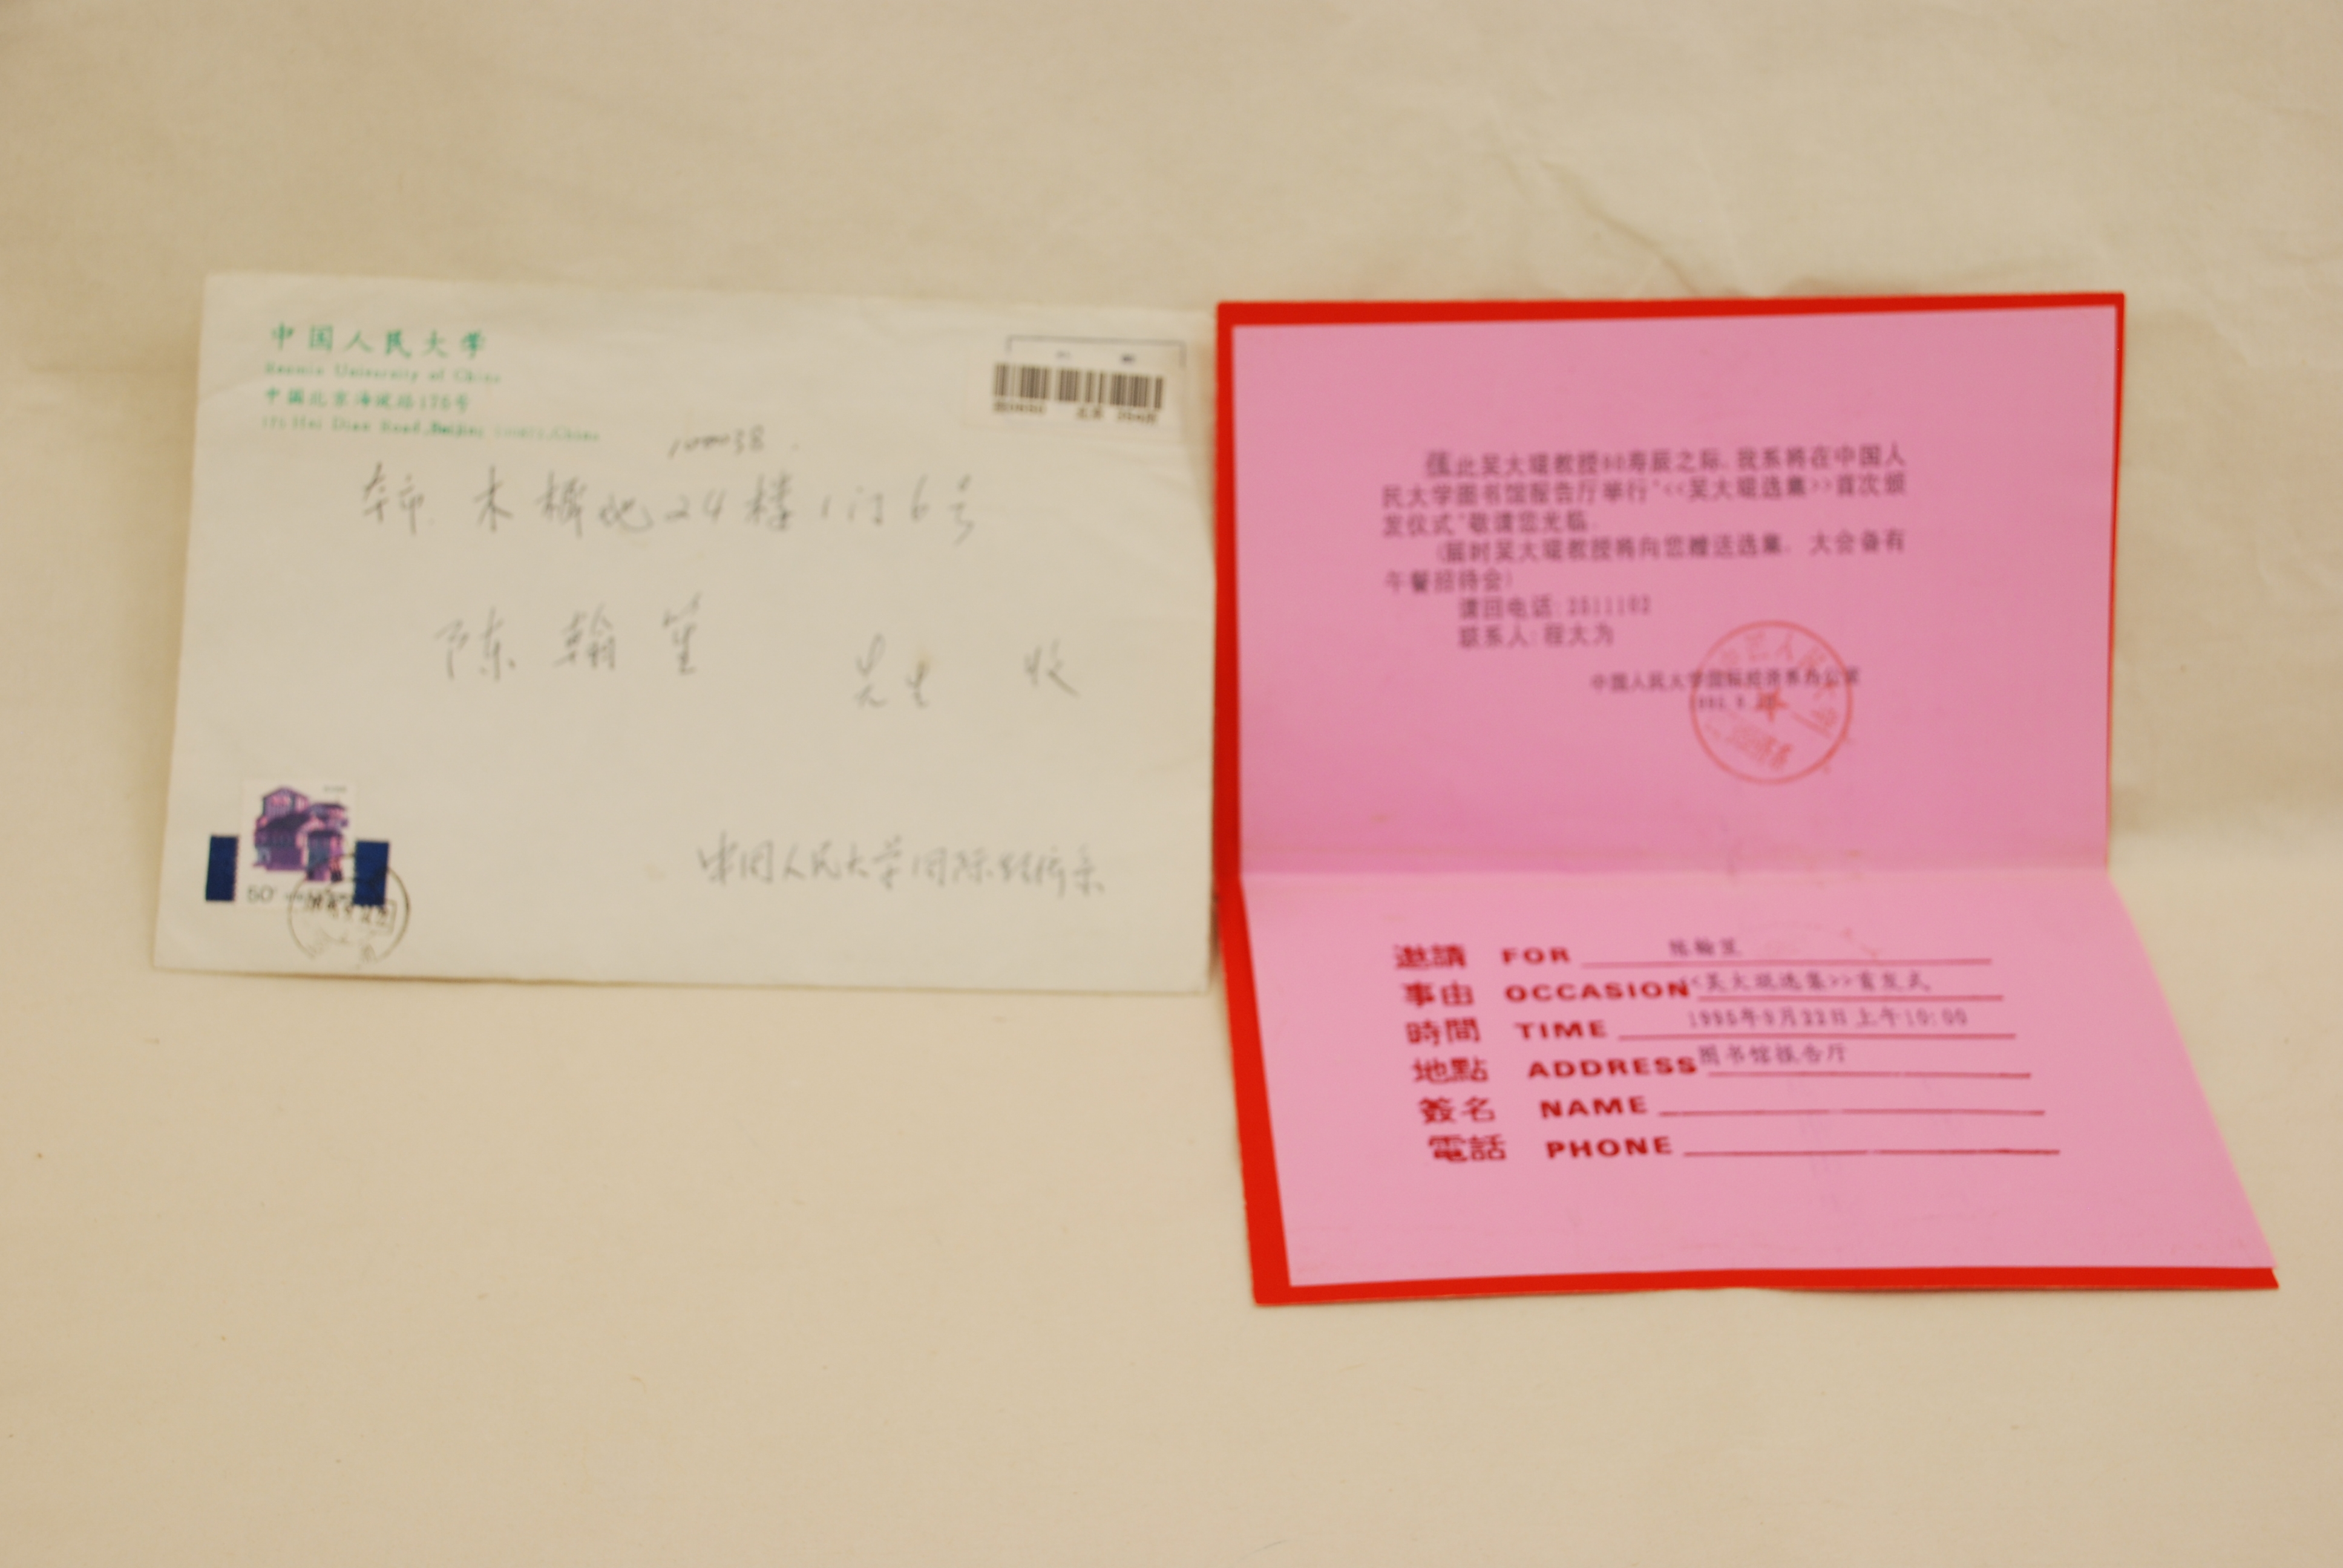 中国人民大学
Renmin University of China
中国北京海淀路175号
175 Hai Dian Road, Beijing China
100038
本市 木樨地24楼1门6号
陈翰笙 先生 收
50
中国人民大学国际经济系
值此吴大琨教授80寿辰之际,我系将在中国人
民大学图书馆报告厅举行"<<吴大琨选集>>首次颁
发仪式"敬请您光临.
(届时吴大琨教授将向您赠送选集. 大会备有
午餐招待会)
请回电话:2511102
联系人:程大为
中国人民大学国际经济系办公室
邀請 FOR 陈翰笙
事由 OCCASION <<吴大琨选集>>首发式
時間 TIME 1995年9月22日上午10:00
地點 ADDRESS 图书馆报告厅
簽名 NAME
電話 PHONE